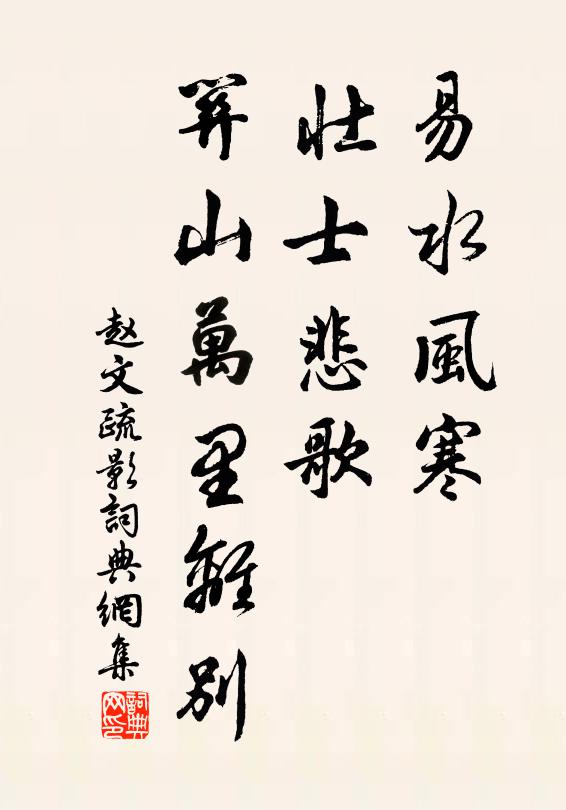 易水風寒
壮士悲歌
关山萬里離别
赵文疏影詞典網集
詞典网印